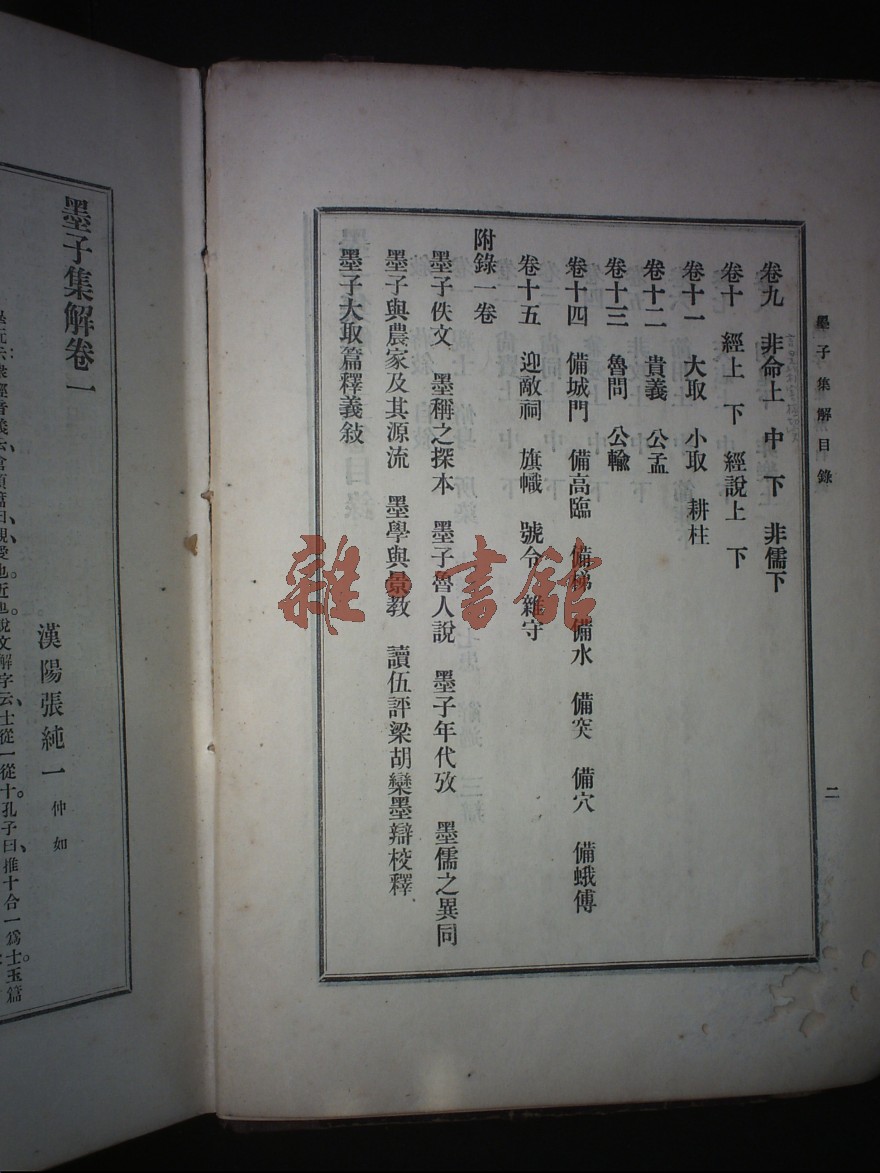 墨子集解目錄
二
卷九 非命上 中 下 非儒下
卷十 經上 下 經說上 下
卷十一 大取 小取 耕柱
卷十二 貴義 公孟
卷十三 魯問 公輸
卷十四 備城門 備高臨 備梯 備水 備突 備穴 備蛾傅
卷十五 迎敵祠 旗幟 號令 雜守
附錄一卷
墨子佚文 墨稱之探本 墨子魯人說 墨子年代攷 墨儒之異同
墨子與農家及其源流 墨學與景教 讀伍評梁胡欒墨辯校釋
墨子大取篇釋義敍
墨子集解卷一
漢陽張純一仲如
親愛也近也說文解字云士從一從十孔子曰推十合一爲士玉篇
雜·書館